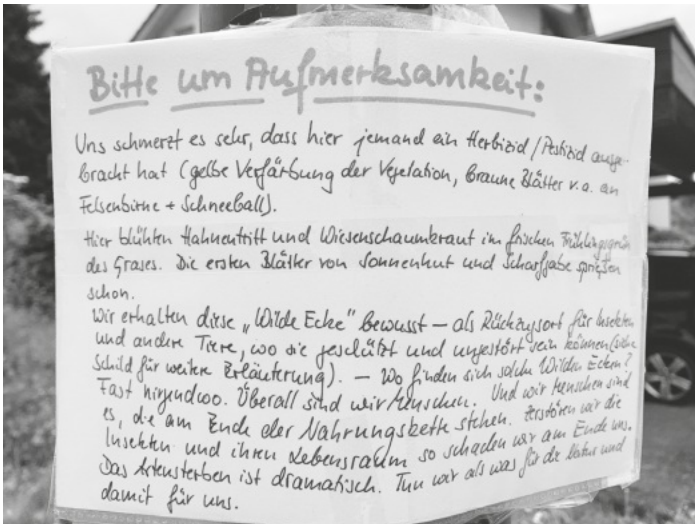 Bitte um Aufmerksamkeit:
Uns schmerzt es sehr, dass hier jemand ein Herbizid / Pestizid ausge-
bracht hat (gelbe Verfärbung der Vegetation, braune Blätter v.a. an
Felsenbirne + Schneeball).
Hier blühten Hahnentritt und Wiesenschaumkraut im frischen Frühlingsgrün
des Grases. Die ersten Blätter von Sonnenhut und Scharfgabe spriesen
schon.
Wir erhalten diese „Wilde Ecke" bewusst – als Rückzugsort für Insekten
und andere Tiere, wo sie geschützt und ungestört sein können (siehe
Schild für weitere Erläuterung). – Wo finden sich solche Wilden Ecken?
Fast nirgendwo. Überall sind wir Menschen. Und wir Menschen sind
es, die am Ende der Nahrungskette stehen. Zerstören wir die
Insekten und ihren Lebensraum so schaden wir am Ende uns.
Das Artensterben ist dramatisch. Tun wir als was für die Natur und
damit für uns.